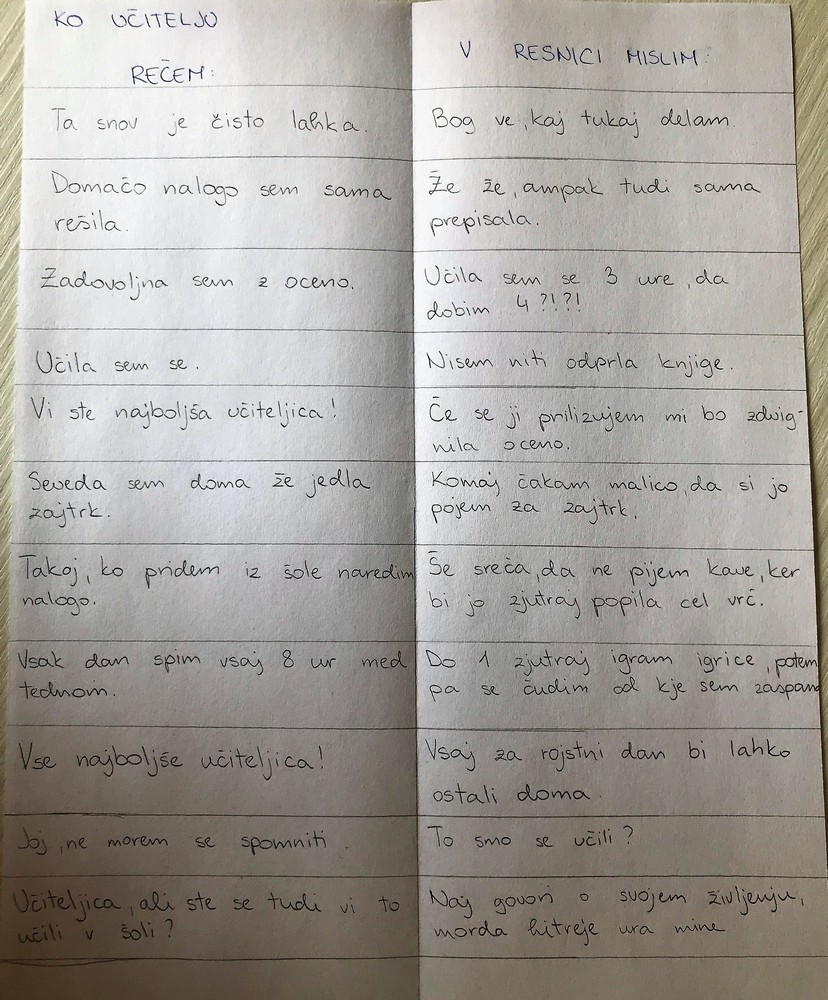 KO UČITELJU
REČEM:
V RESNICI MISLIM:
Ta snov je čisto lahka.
Bog ve, kaj tukaj delam.
Domačo nalogo sem sama
rešila.
Že že, ampak tudi sama
prepisala.
Zadovoljna sem z oceno.
Učila sem se 3 ure, da
dobim 4?!?!
Učila sem se.
Nisem niti odprla knjige.
Vi ste najboljša učiteljica!
Če se ji prilizujem mi bo zdvig-
nila oceno.
Seveda sem doma že jedla
zajtrk.
Komaj čakam malico, da si jo
pojem za zajtrk.
Takoj, ko pridem iz šole naredim
nalogo.
Še sreča, da ne pijem kave, ker
bi jo zjutraj popila cel vrč.
Vsak dan spim vsaj 8 ur med
tednom.
Do 1 zjutraj igram igrice, potem
pa se čudim od kje sem zaspana
Vse najboljše učiteljica!
Vsaj za rojstni dan bi lahko
ostali doma.
Joj, ne morem se spomniti.
To smo se učili?
Učiteljica, ali ste se tudi vi to
učili v šoli?
Naj govori o svojem življenju,
morda hitreje ura mine